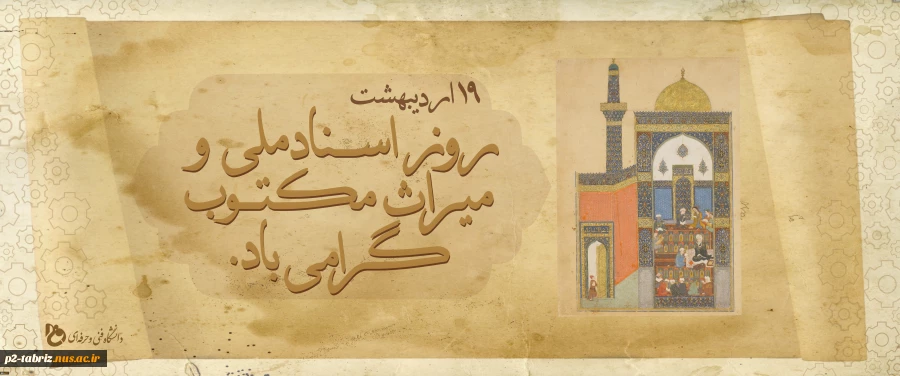 ۱۹ اردیبهشت
روز اسناد ملی و
میراث مکتوب
گرامی باد.
دانشگاه فنی و حرفه‌ای
p2-tabriz.nus.ac.ir